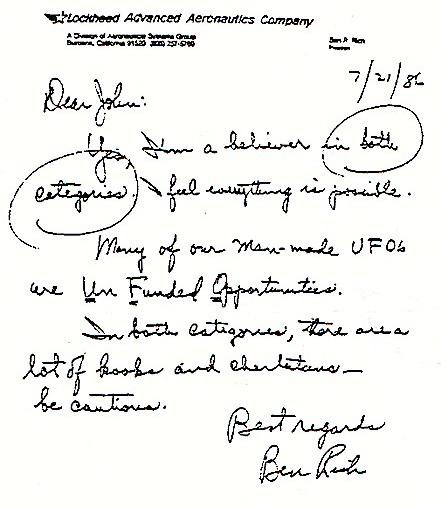 Lockheed Advanced Aeronautics Company
A Division of Aeronautical Systems Group
Burbank, California 91520
Ben R. Rich
President
7/21/86
Dear John:
Yes, I'm a believer in both
categories. I feel everything is possible.
Many of our man-made UFO's
are Un Funded Opportunities.
In both categories, there are a
lot of kooks and charlatans—
be cautious.
Best regards
Ben Rich